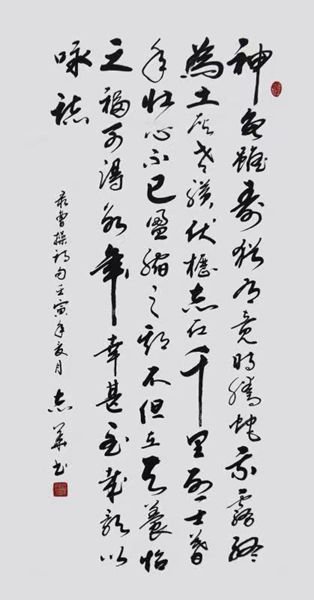 神龜雖壽猶有竟時騰蛇乘霧終
為土灰老驥伏櫪志在千里烈士暮
年壯心不已盈縮之期不但在天養怡
之福可得永年幸甚至哉歌以
咏誌
录曹操詩句壬寅年夏月
志華書